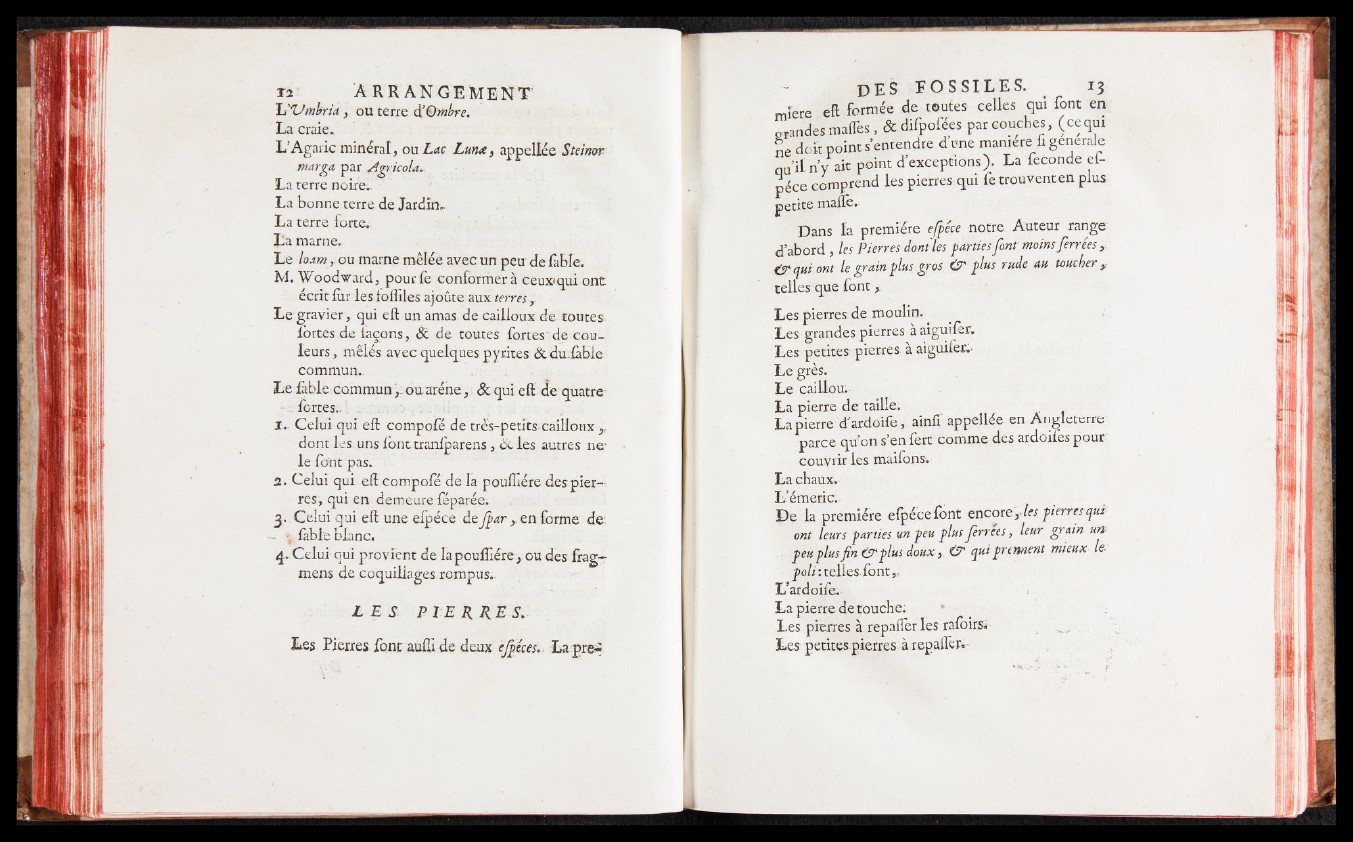 12 ARRANGEMENT
L'Vmbria, ou terre d'Ombre.
La craie.
L'Agaric minéral, ou Lac Lunæ, appellée Steinor
marga par Agricola.
La terre noire.
La bonne terre de Jardin.
La terre forte.
La marne.
Le loam, ou marne mêlée avec un peu de ſable.
M. Woodward, pour ſe conformer à ceux qui ont
écrit ſur les foſſiles ajoûte aux terres,
Le gravier, qui eſt un amas de cailloux de toutes
ſortes de façons, & de toutes ſortes de cou-
leurs, mêlés avec quelques pyrites & du ſable
commun.
Le ſable commun, ou aréne, & qui eſt de quatre
ſortes.
1. Celui qui eſt compoſé de très-petits cailloux,
dont les uns ſont tranſparens, & les autres ne
le ſont pas.
2. Celui qui eſt compoſé de la pouſſiére des pier-
res, qui en demeure ſéparée.
3. Celui qui eſt une eſpéce de ſpar, en forme de
ſable blanc.
4. Celui qui provient de la pouſſiére, ou des frag-
mens de coquillages rompus.
LES PIERRES.
Les Pierres ſont auſſi de deux eſpéces. La pre-
DES FOSSILES. 13
miere eſt formée de toutes celles qui ſont en
grandes maſſes, & diſpoſées par couches, (ce qui
ne doit point s'entendre d'vne maniére ſi générale
qu'il n'y ait point d'exceptions). La ſeconde eſ-
péce comprend les pierres qui ſe trouvent en plus
petite maſſe.
Dans la premiére eſpéce notre Auteur range
d'abord, les Pierres dont les parties ſont moins ſerrées,
& qui ont le grain plus gros & plus rude au toucher,
telles que ſont,
Les pierres de moulin.
Les grandes pierres à aiguiſer.
Les petites pierres à aiguiſer.
Le grès.
Le caillou.
La pierre de taille.
La pierre d'ardoiſe, ainſi appellée en Angleterre
parce qu'on s'en ſert comme des ardoiſes pour
couvrir les maiſons.
La chaux.
L'émeric.
De la premiére eſpéce ſont encore, les pierres qui
ont leurs parties un peu plus ſerrées, leur grain un
peu plus fin & plus doux, & qui prennent mieux le
poli: telles ſont,
L'ardoiſe.
La pierre de touche.
Les pierres à repaſſer les raſoirs.
Les petites pierres à repaſſer.